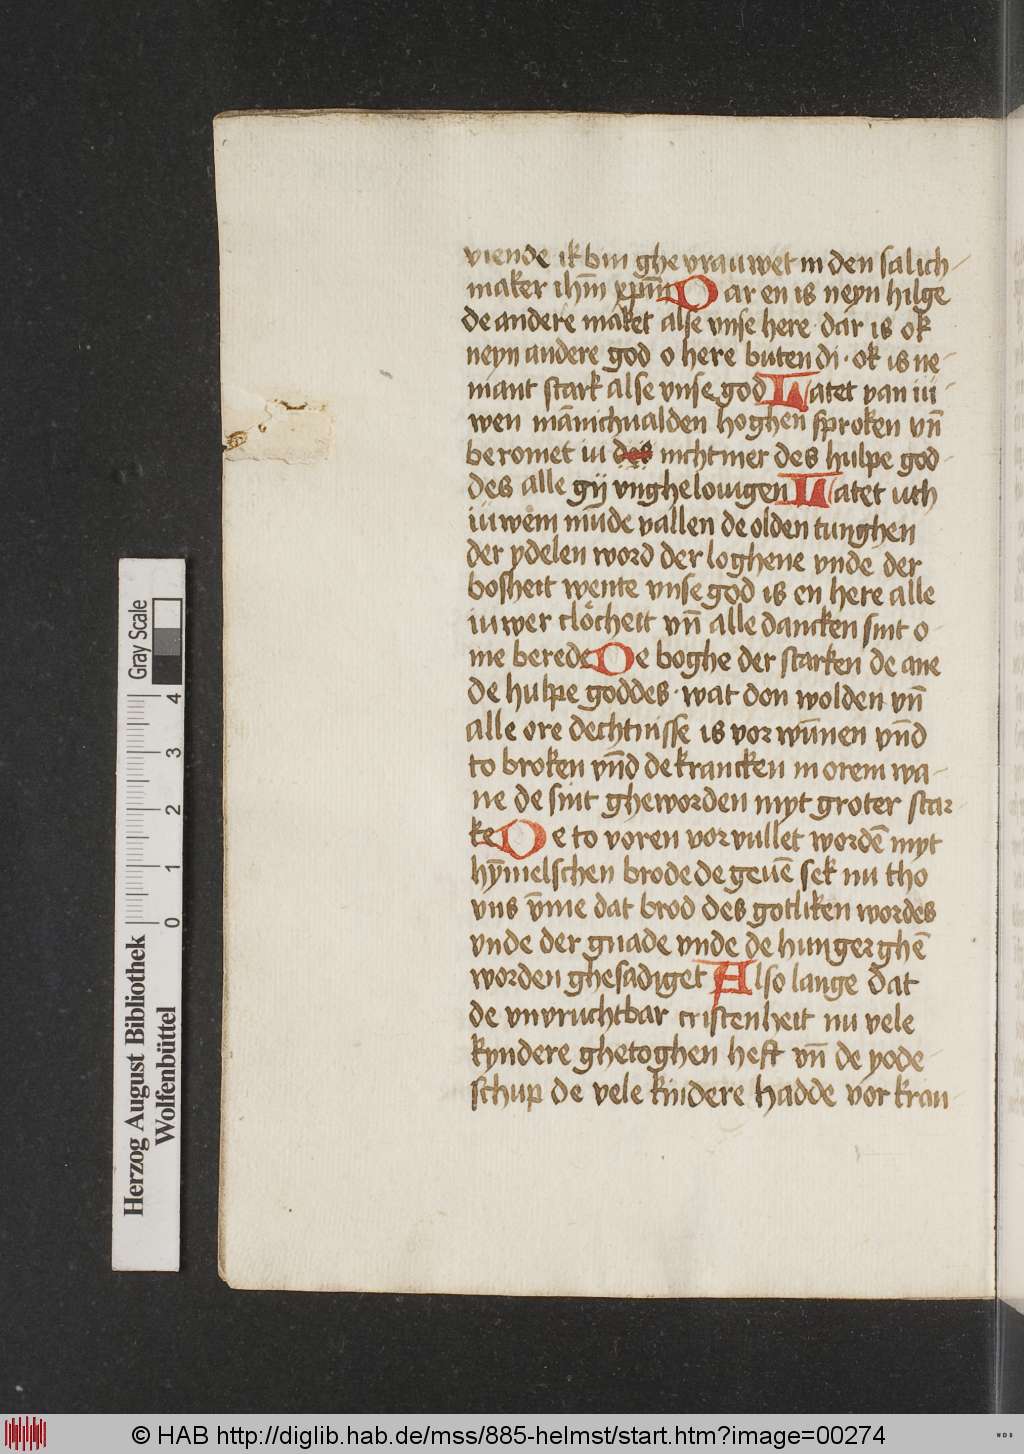 viende ik bin ghe vrauwet in den salich-
maker ihm̄ xpm̄ Dar en is neyn hilge
de andere maket alse vnse here · dar is ok
neyn andere god o here buten di · ok is ne-
mant stark alse vnse god Latet van iu-
wen mānichualden hoghen sproken vn̄
beromet iu des nicht mer des hulpe god-
des alle gij vnghelouigen Latet uth
iuwem mūde vallen de olden tunghen
der ydelen word der loghene vnde der
bosheit wente vnse god is en here alle
iuwer clöcheit vn̄ alle dancken sint o-
me berede De boghe der starken de ane
de hulpe goddes · wat don wolden vn̄
alle ore dechtnisse is vor wūnen vn̄d
to broken vn̄d de krancken in orem wa-
ne de sint gheworden myt groter star
ke De to voren vor vullet wordē myt
hȳmelschen brode de geuē sek nu tho
vns v̄me dat brod des gotliken wordes
vnde der gnade vnde de hungerghē
worden ghesadiget Also lange dat
de vnvruchtbar cristenheit nu vele
kyndere ghetoghen heft vn̄ de yode-
schup de vele kindere hadde vor kran-
Herzog August Bibliothek
Wolfenbüttel
Gray Scale
0 1 2 3 4
© HAB http://diglib.hab.de/mss/885-helmst/start.htm?image=00274
WDB